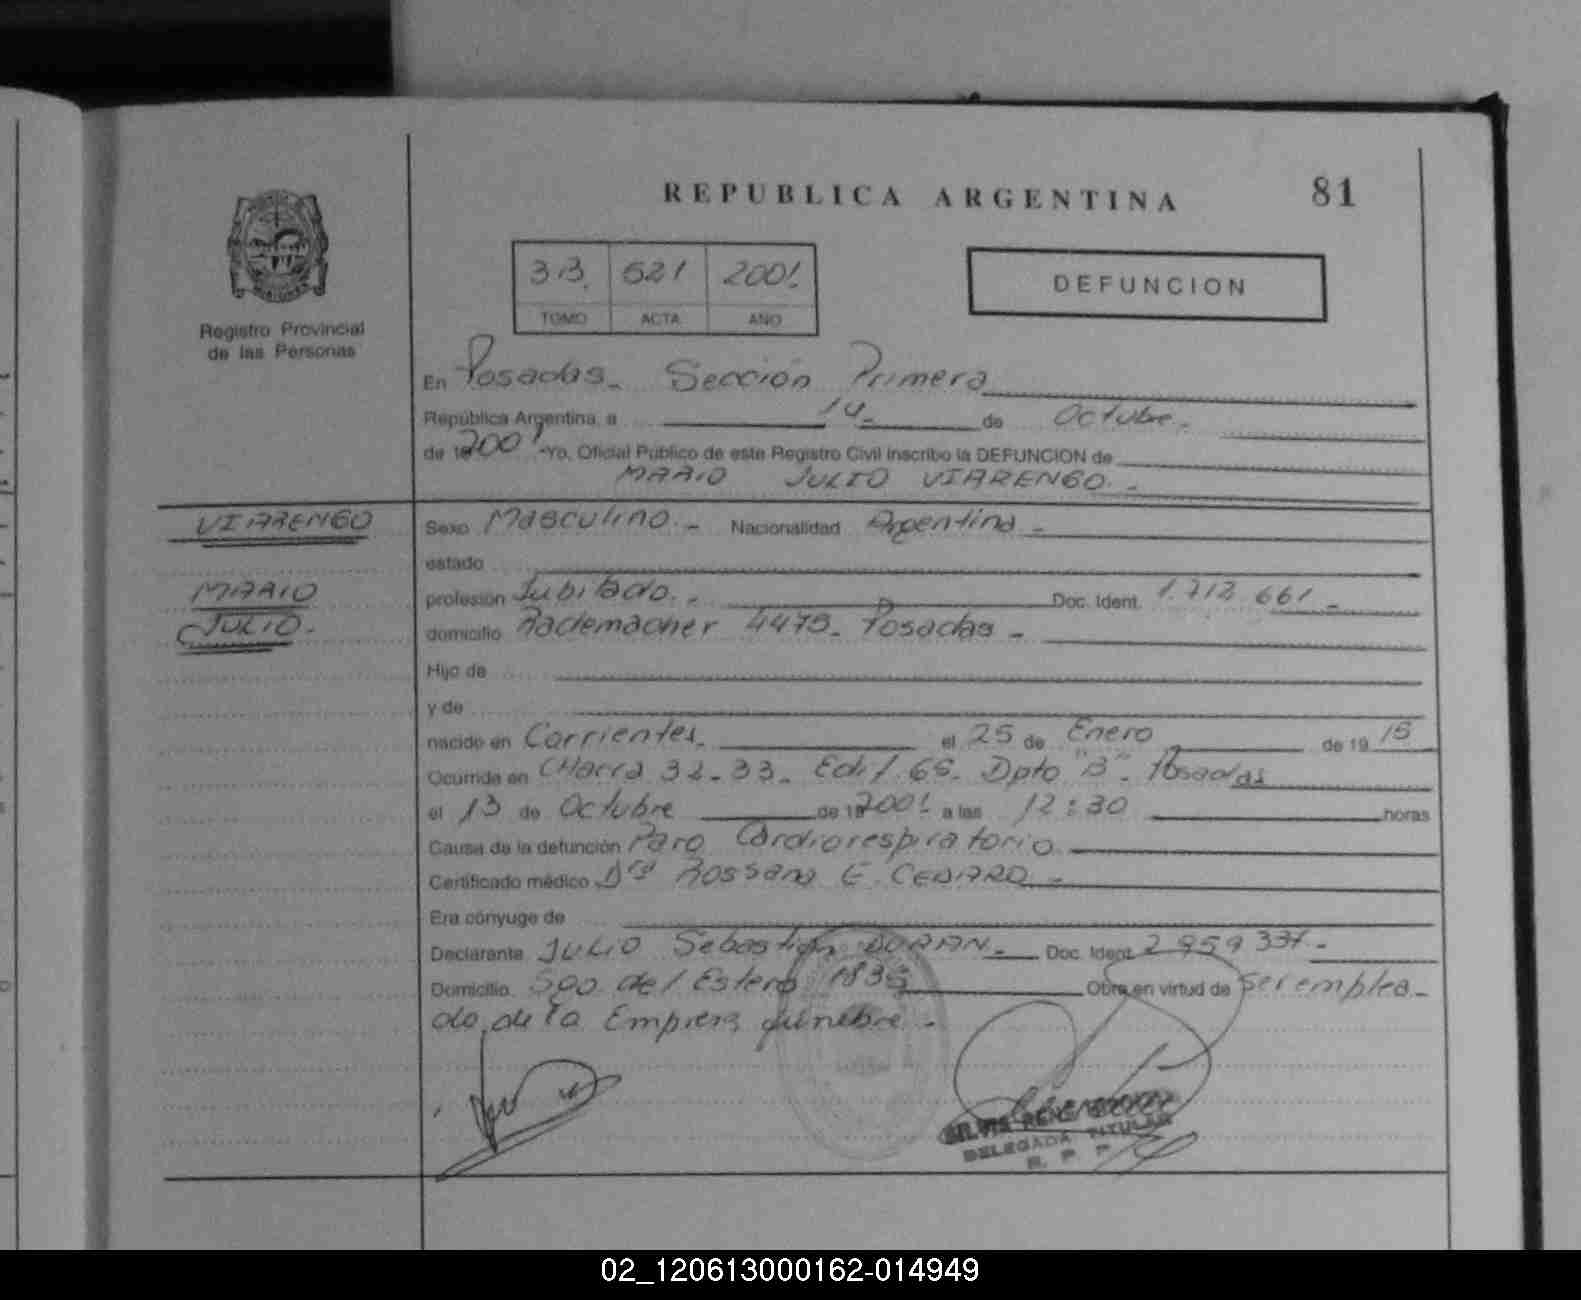 REPUBLICA ARGENTINA
81
Registro Provincial
de las Personas
313. 621 2001.
TOMO ACTA AÑO
DEFUNCION
En Posadas - Sección Primera
República Argentina, a 14 - de Octubre -
de 19 2001 -Yo, Oficial Público de este Registro Civil inscribo la DEFUNCION de
MARIO JULIO VIARENGO. -
VIARENGO
MARIO
JULIO.-
Sexo Masculino. - Nacionalidad Argentina -
estado
profesión Jubilado. - Doc. Ident. 1.712.661 -
domicilio Rademacher 4475 - Posadas -
Hijo de
y de
nacido en Corrientes. el 25 de Enero de 19 15
Ocurrida en CHacra 32-33 - Edif 65 - Dpto "B" - Posadas
el 13 de Octubre de 19 2001 a las 12:30 horas
Causa de la defunción Paro Cardiorespiratorio.
Certificado médico Dra Rossana E. -
Era cónyuge de
Declarante JULIO Sebastián DURAN - Doc. Ident. 2.959.337 -
Domicilio. Sgo. del Estero Obra en virtud de ser emplea-
do de la Empresa fúnebre. -
DELEGADA TITULAR
R. P. P.
02_120613000162-014949